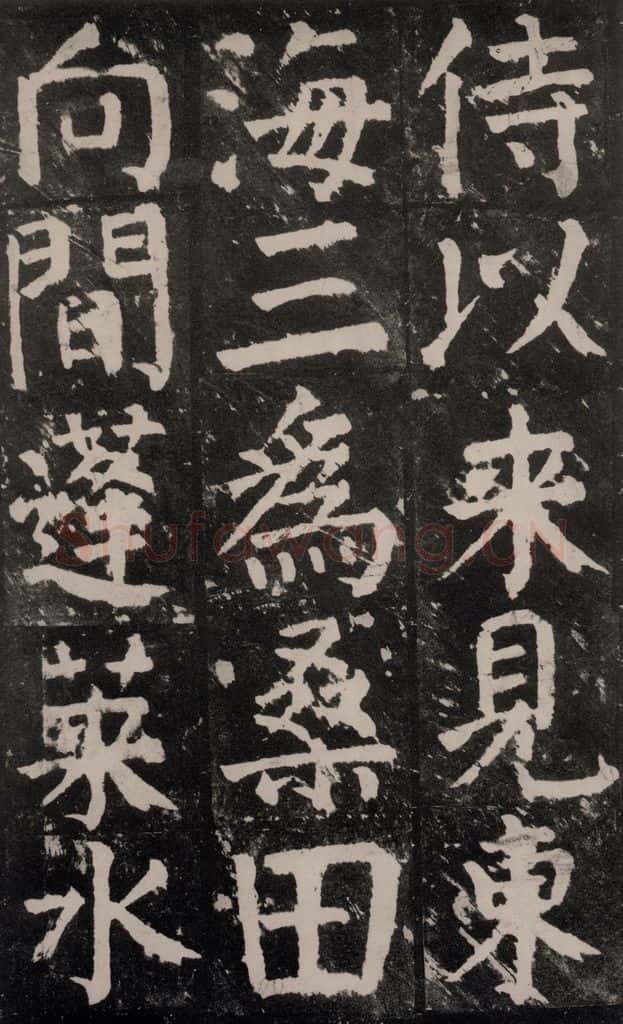 侍以来見東
海三為桑田
向間蓬莱水
Shufawang.CN